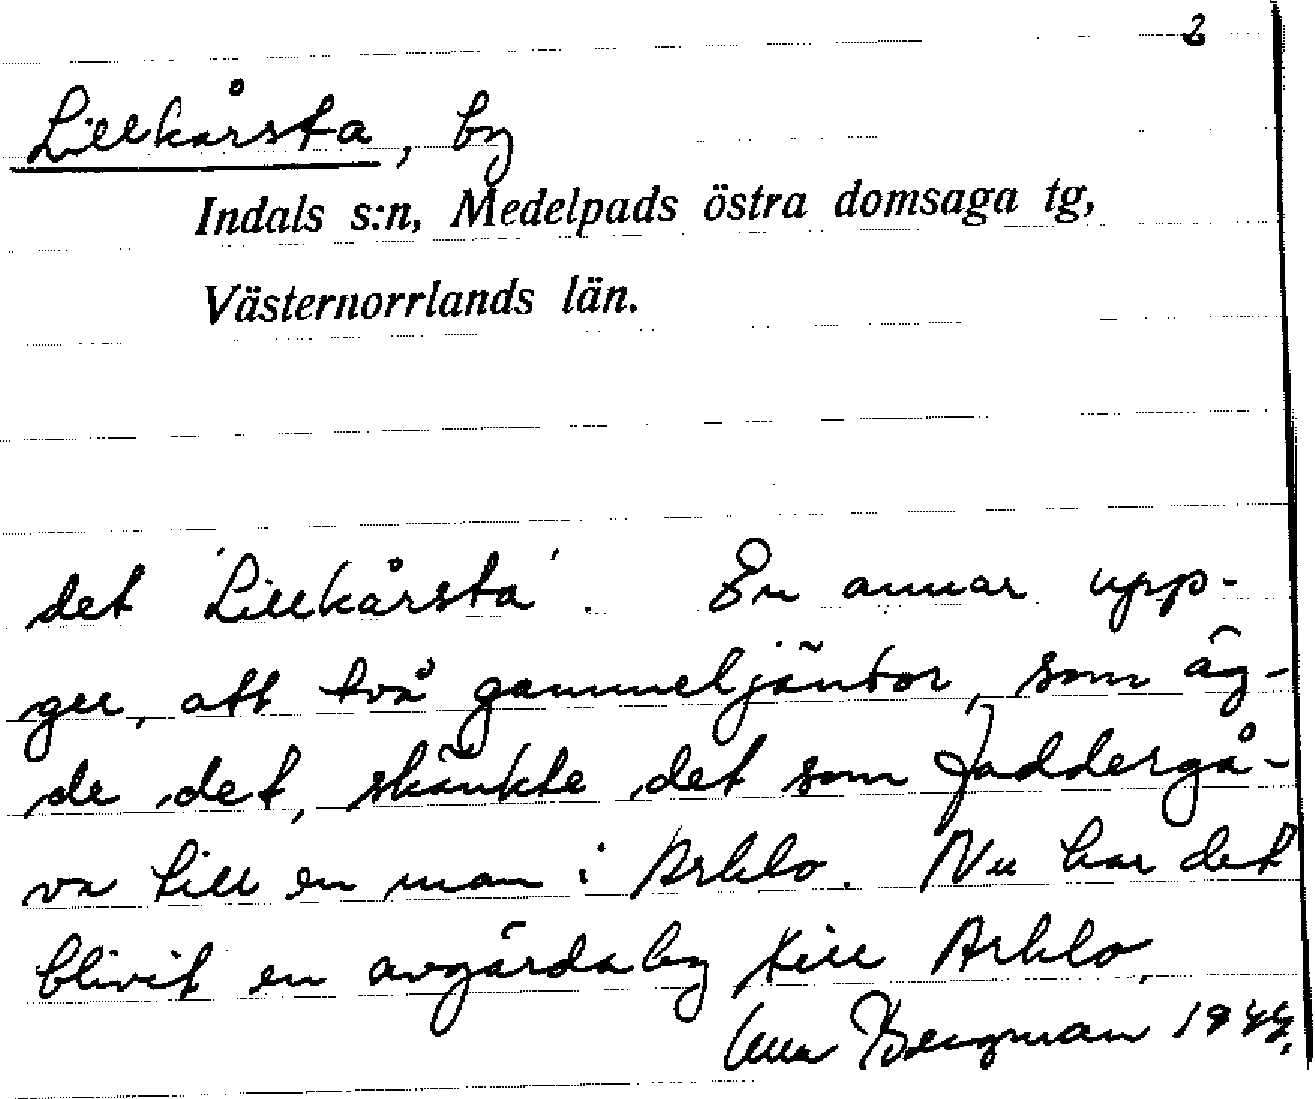 2
Lillkårsta, by
Indals s:n, Medelpads östra domsaga tg,
Västernorrlands län.
det 'Lillkårsta'. En annan upp-
ger, att två gammeljäntor, som äg-
de det, skänkte det som faddergå-
va till en man i Arklo. Nu har det
blivit en avgärdaby till Arklo.
Bergman 1944.